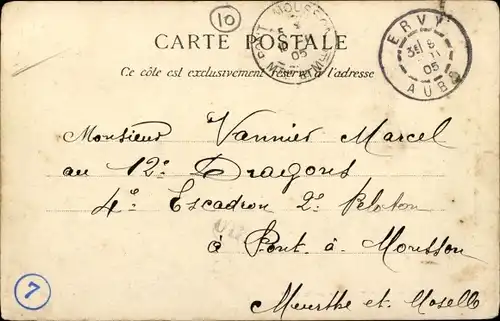 10
PONT-A-MOUSSON
05
MEURTHE
ERVY
3E 6
05
AUBE
CARTE POSTALE
Ce côté est exclusivement réservé à l'adresse
Monsieur Vannier Marcel
au 12e Dragons
4e Escadron 2e Peloton
à Pont-à-Mousson
Meurthe et Moselle
7